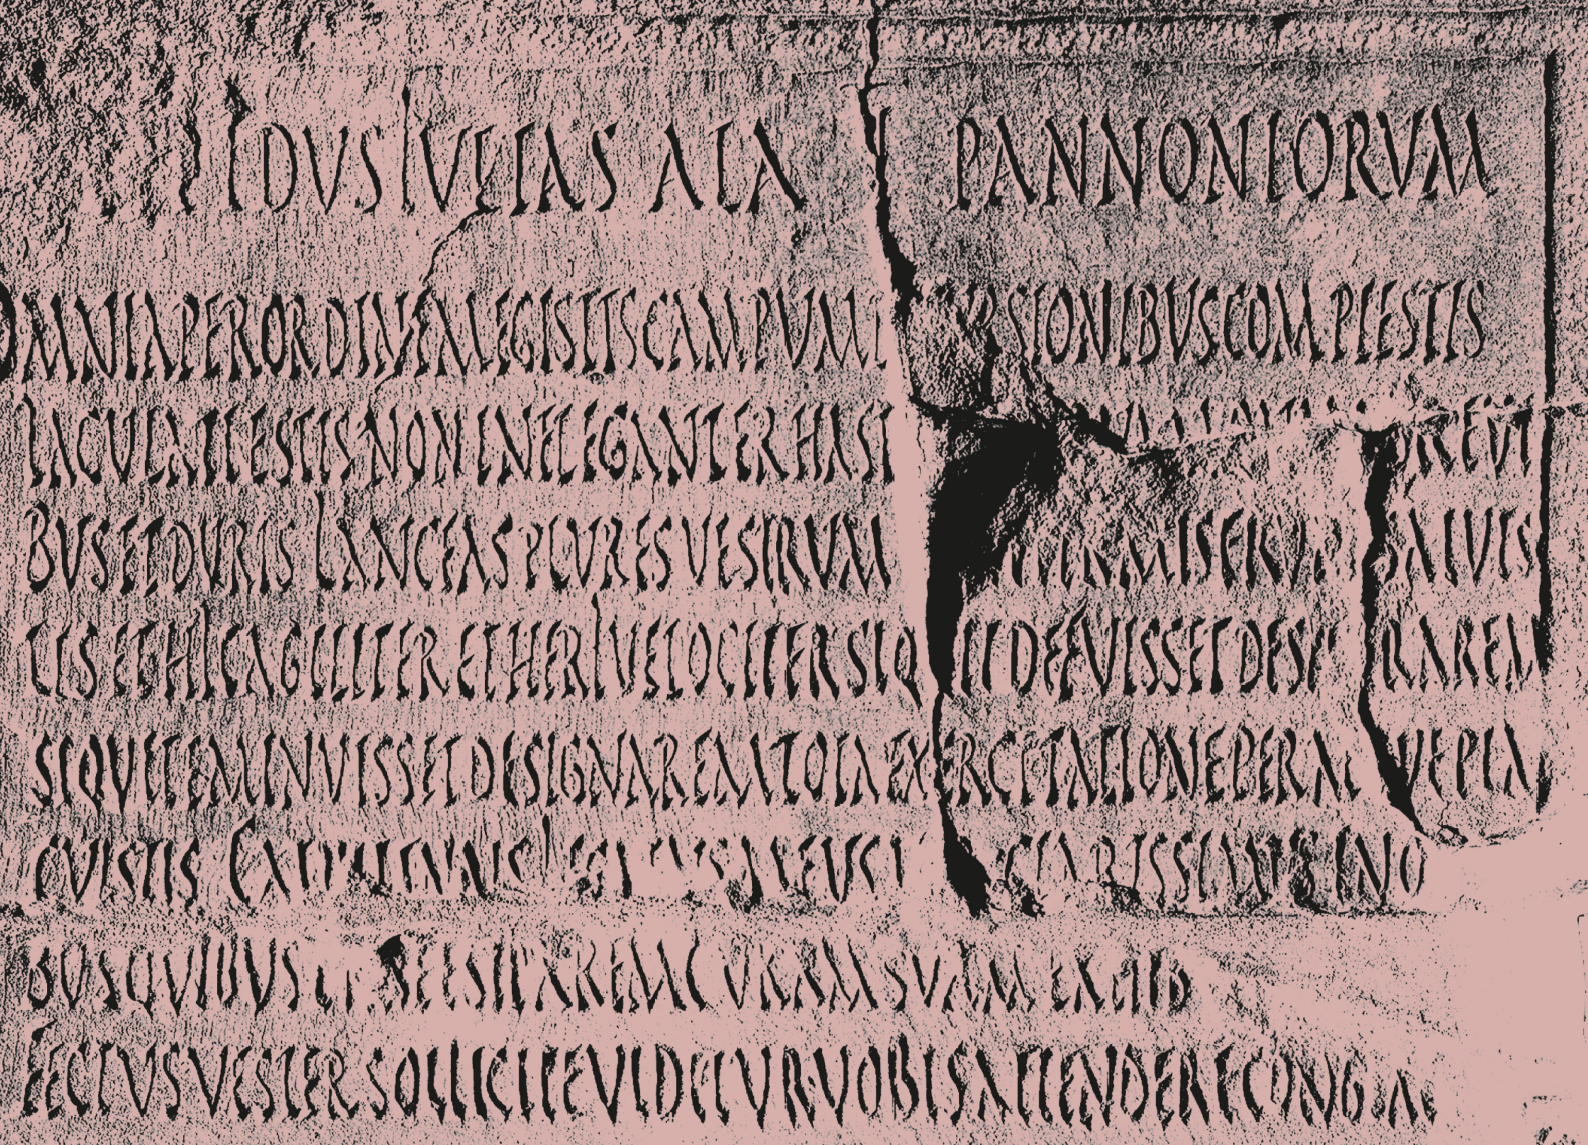 IDVS IVLIAS ALA PANNONIORVM
OMNIA PER ORDINEM EGISTIS CAMPVM SIONIBVS COMPLESTIS
IACVLATI ESTIS NON INELEGANTER HASTI BREVI
BVS ET DVRIS LANCEAS PLVRES VESTRVM MISERVNT SALVIS
TIS ET HIC AGILITER ET HERI VELOCITER SI QVIT DEFVISSET DESI RAREM
SI QVIT EMINVISSET DESIGNAREM TOTA EXERCITATIONE PERAEQVE PLA
CVISTIS CATVLLINVS MEVS CLARISSIMVS IN O
BVS QVIBVS PAREM CVRAM SVAM EXHIB
FECTVS VESTER SOLLICITE VIDETVR VOBIS ATTENDERE CONGIA